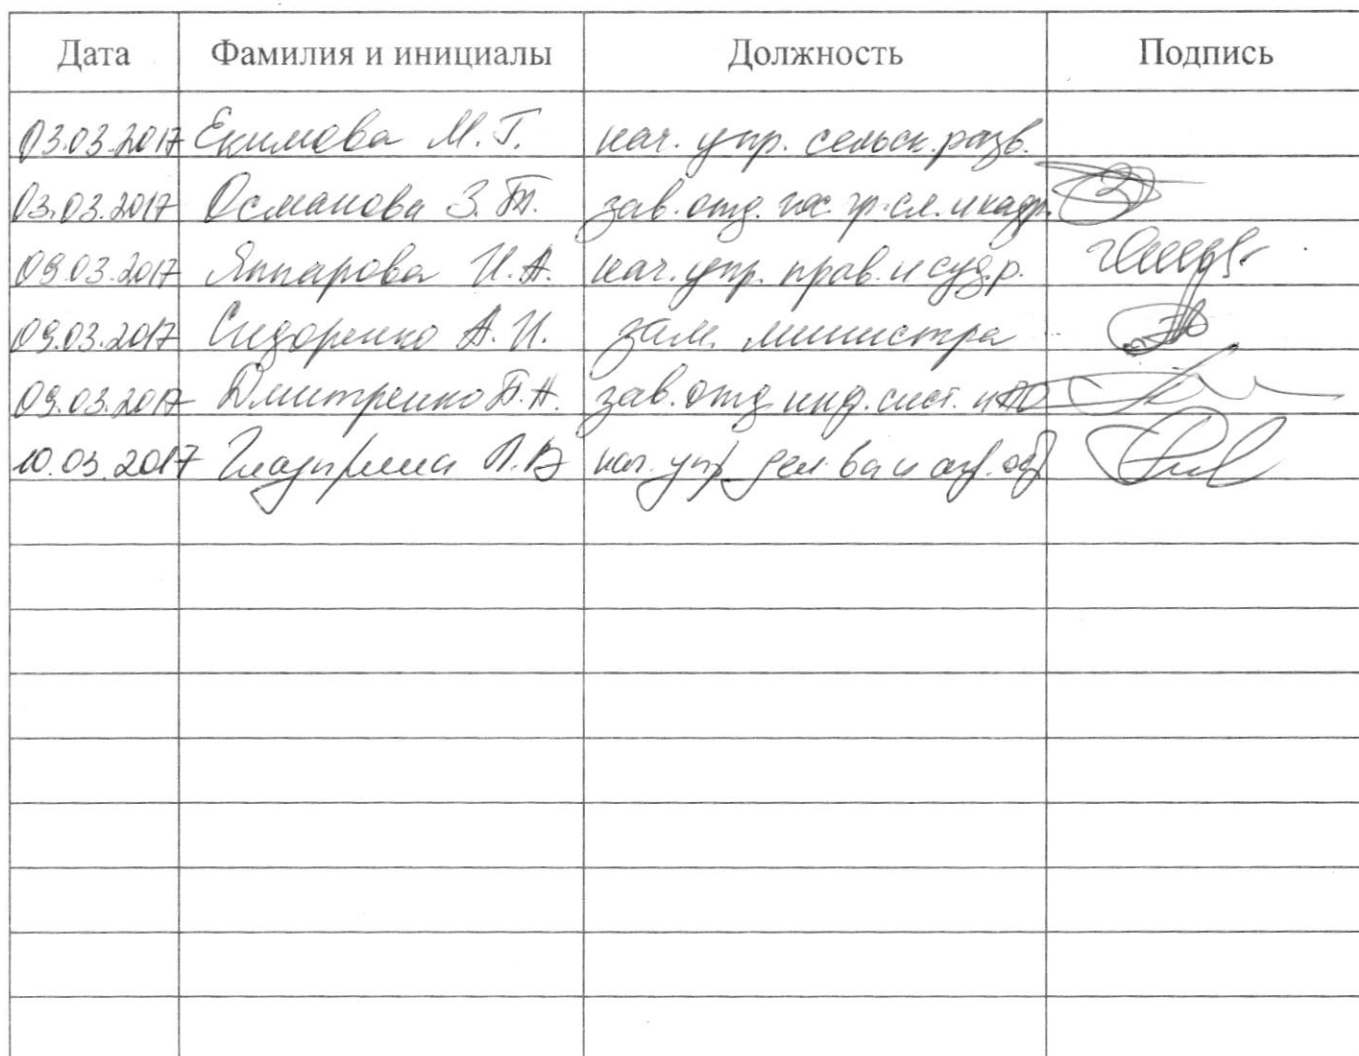 Дата Фамилия и инициалы Должность Подпись
03.03.2017 Екимова М.Г. нач. упр. сельск. разв.
03.03.2017 Османова З.Т. зав. отд. гос. гр. сл. и кадр.
09.03.2017 Яппарова И.А. нач. упр. прав. и суд. р.
09.03.2017 Сидоренко А.И. зам. министра
09.03.2017 Дмитренко Т.А. зав. отд. инф. сист. и ПО
10.03.2017 нач. упр. дел-ва и